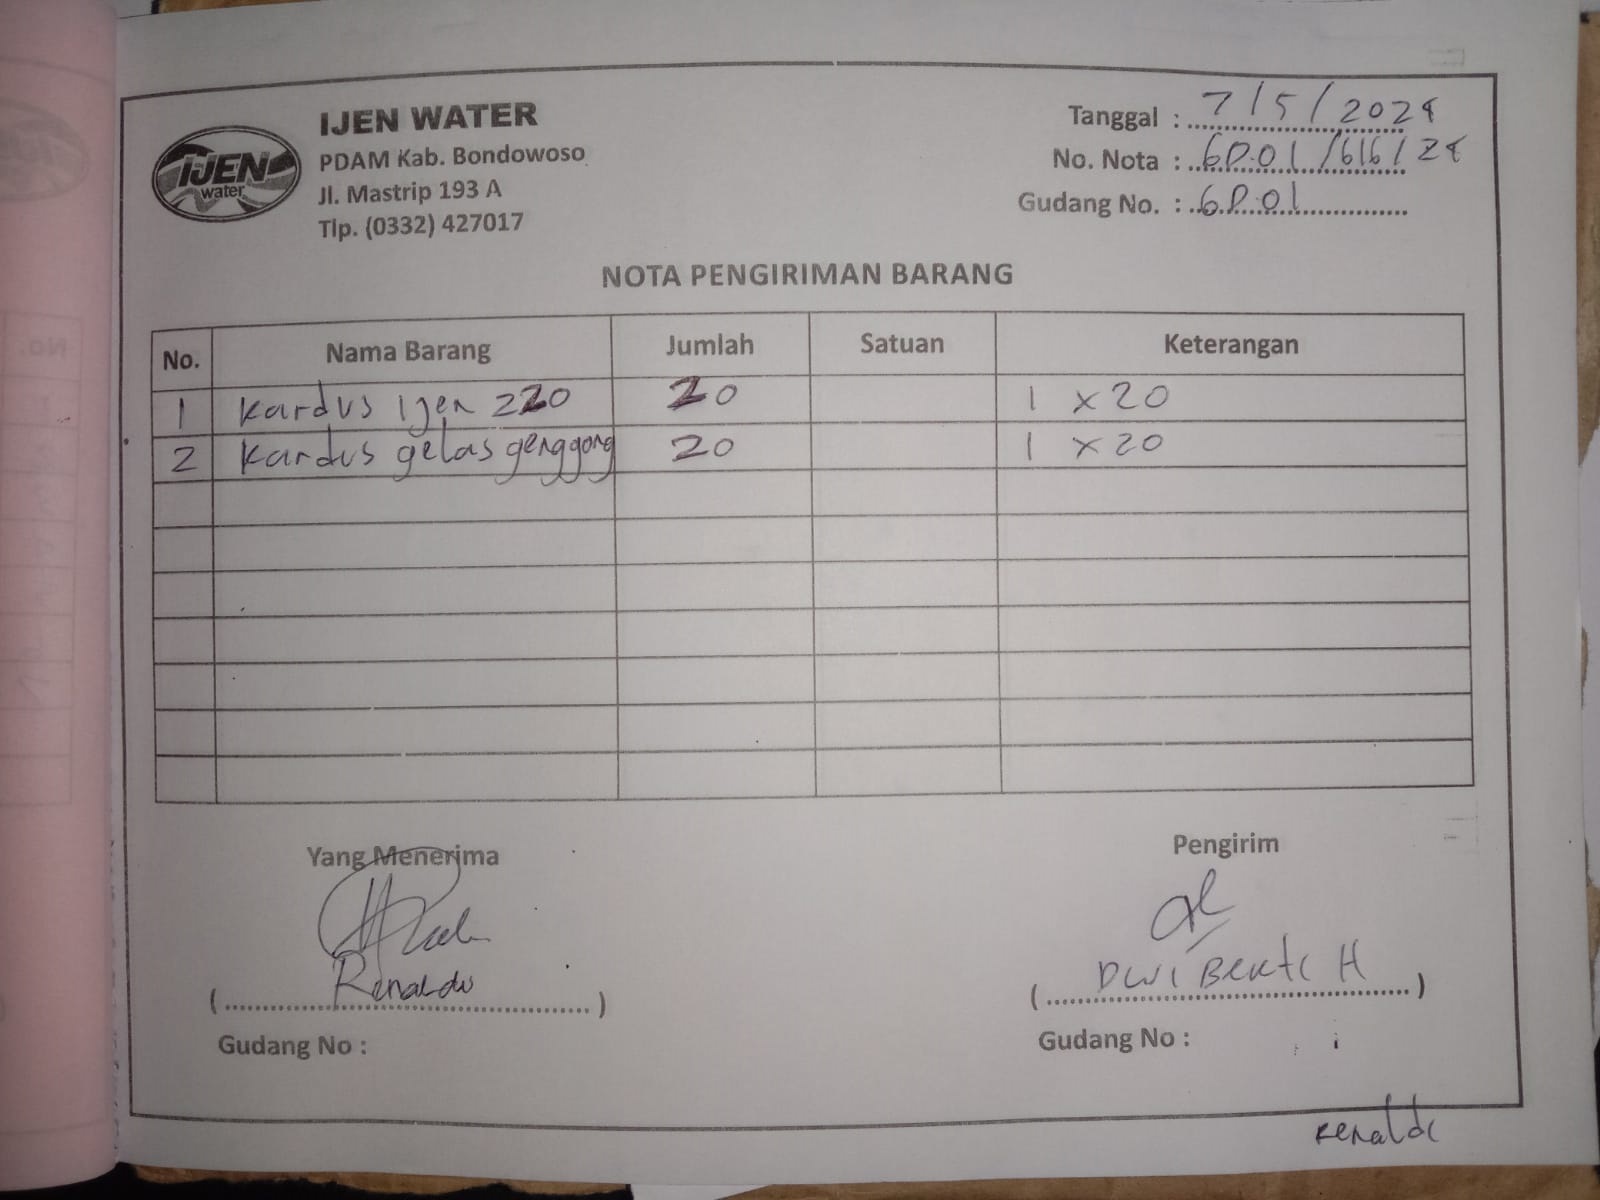 IJEN WATER
PDAM Kab. Bondowoso
Jl. Mastrip 193 A
Tlp. (0332) 427017
IJEN
water
Tanggal : 7/5/2024
No. Nota : GP.01/616/24
Gudang No. : GP.01
NOTA PENGIRIMAN BARANG
No. Nama Barang Jumlah Satuan Keterangan
1 Kardus ijen 220 20 1 x 20
2 Kardus gelas genggong 20 1 x 20
Yang Menerima Pengirim
(Renaldi) (Dwi Bekti H)
Gudang No : Gudang No :
Renaldi